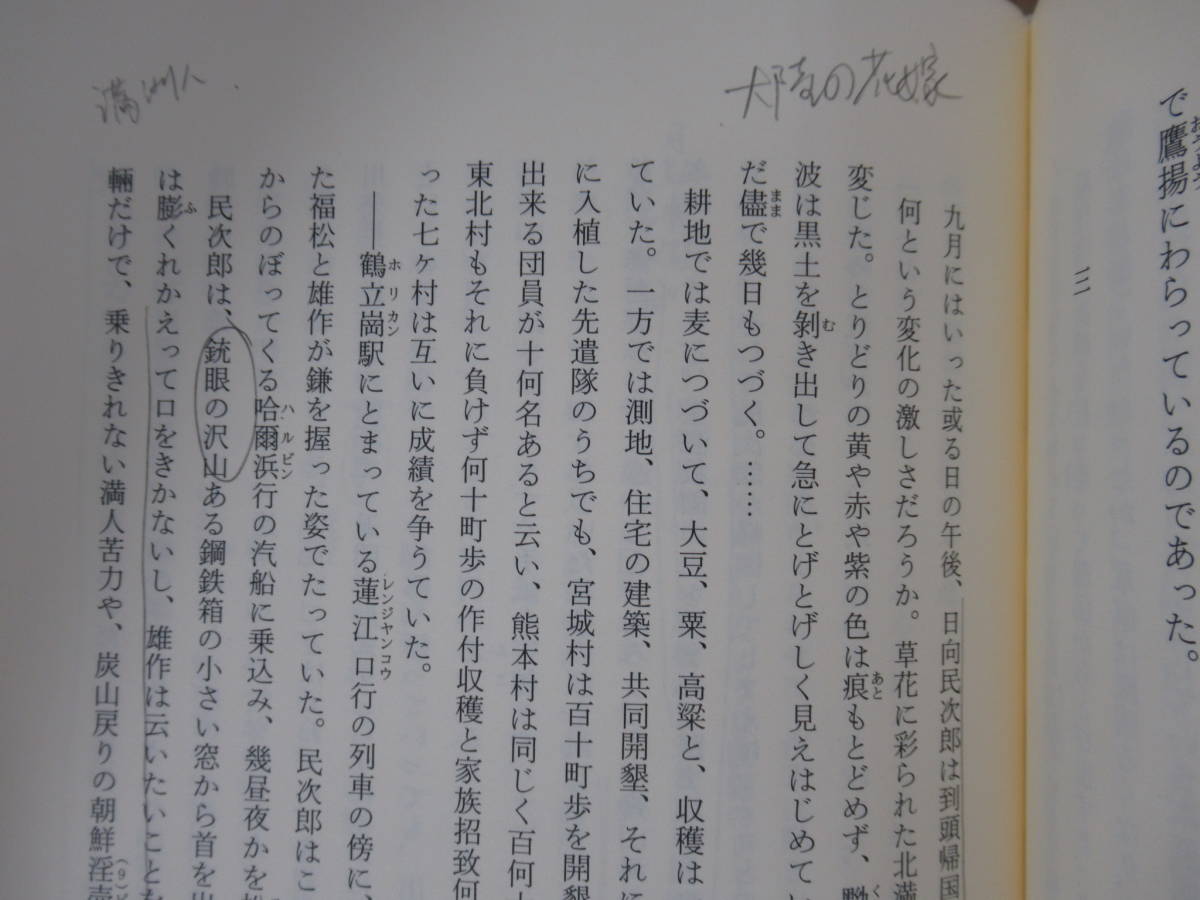 で鷹揚にわらっているのであった。
三
大陸の花嫁
九月にはいった或る日の午後、日向民次郎は到頭帰国
何という変化の激しさだろうか。草花に彩られた北満
変じた。とりどりの黄や赤や紫の色は痕もとどめず、
波は黒土を剝き出して急にとげとげしく見えはじめてい
だ儘で幾日もつづく。……
耕地では麦につづいて、大豆、粟、高粱と、収穫は
ていた。一方では測地、住宅の建築、共同開墾、それに
に入植した先遣隊のうちでも、宮城村は百十町歩を開墾
出来る団員が十何名あると云い、熊本村は同じく百何十
東北村もそれに負けず何十町歩の作付収穫と家族招致何
った七ヶ村は互いに成績を争うていた。
――鶴立崗駅にとまっている蓮江口行の列車の傍に、
た福松と雄作が鎌を握った姿でたっていた。民次郎はこ
からのぼってくる哈爾浜行の汽船に乗込み、幾昼夜かを
民次郎は、銃眼の沢山ある鋼鉄箱の小さい窓から首を出
は膨くれかえって口をきかないし、雄作は云いたいことを
輛だけで、乗りきれない満人苦力や、炭山戻りの朝鮮淫売
満洲人